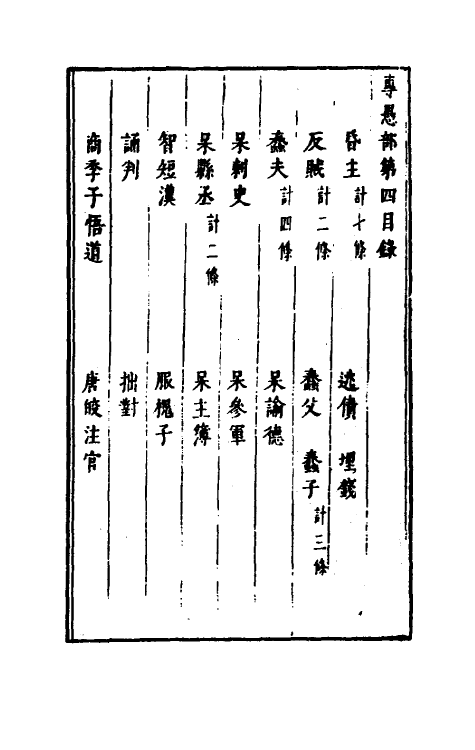 專愚部第四目錄
昏主計七條　逃債　埋錢
反賊計二條　蠢父　蠢子計三條
蠢夫計四條　呆諭德
呆刺史　呆參軍
呆縣丞計二條　呆主簿
智短漢　服槐子
誦判　拙對
商季子悟道　唐皎注官